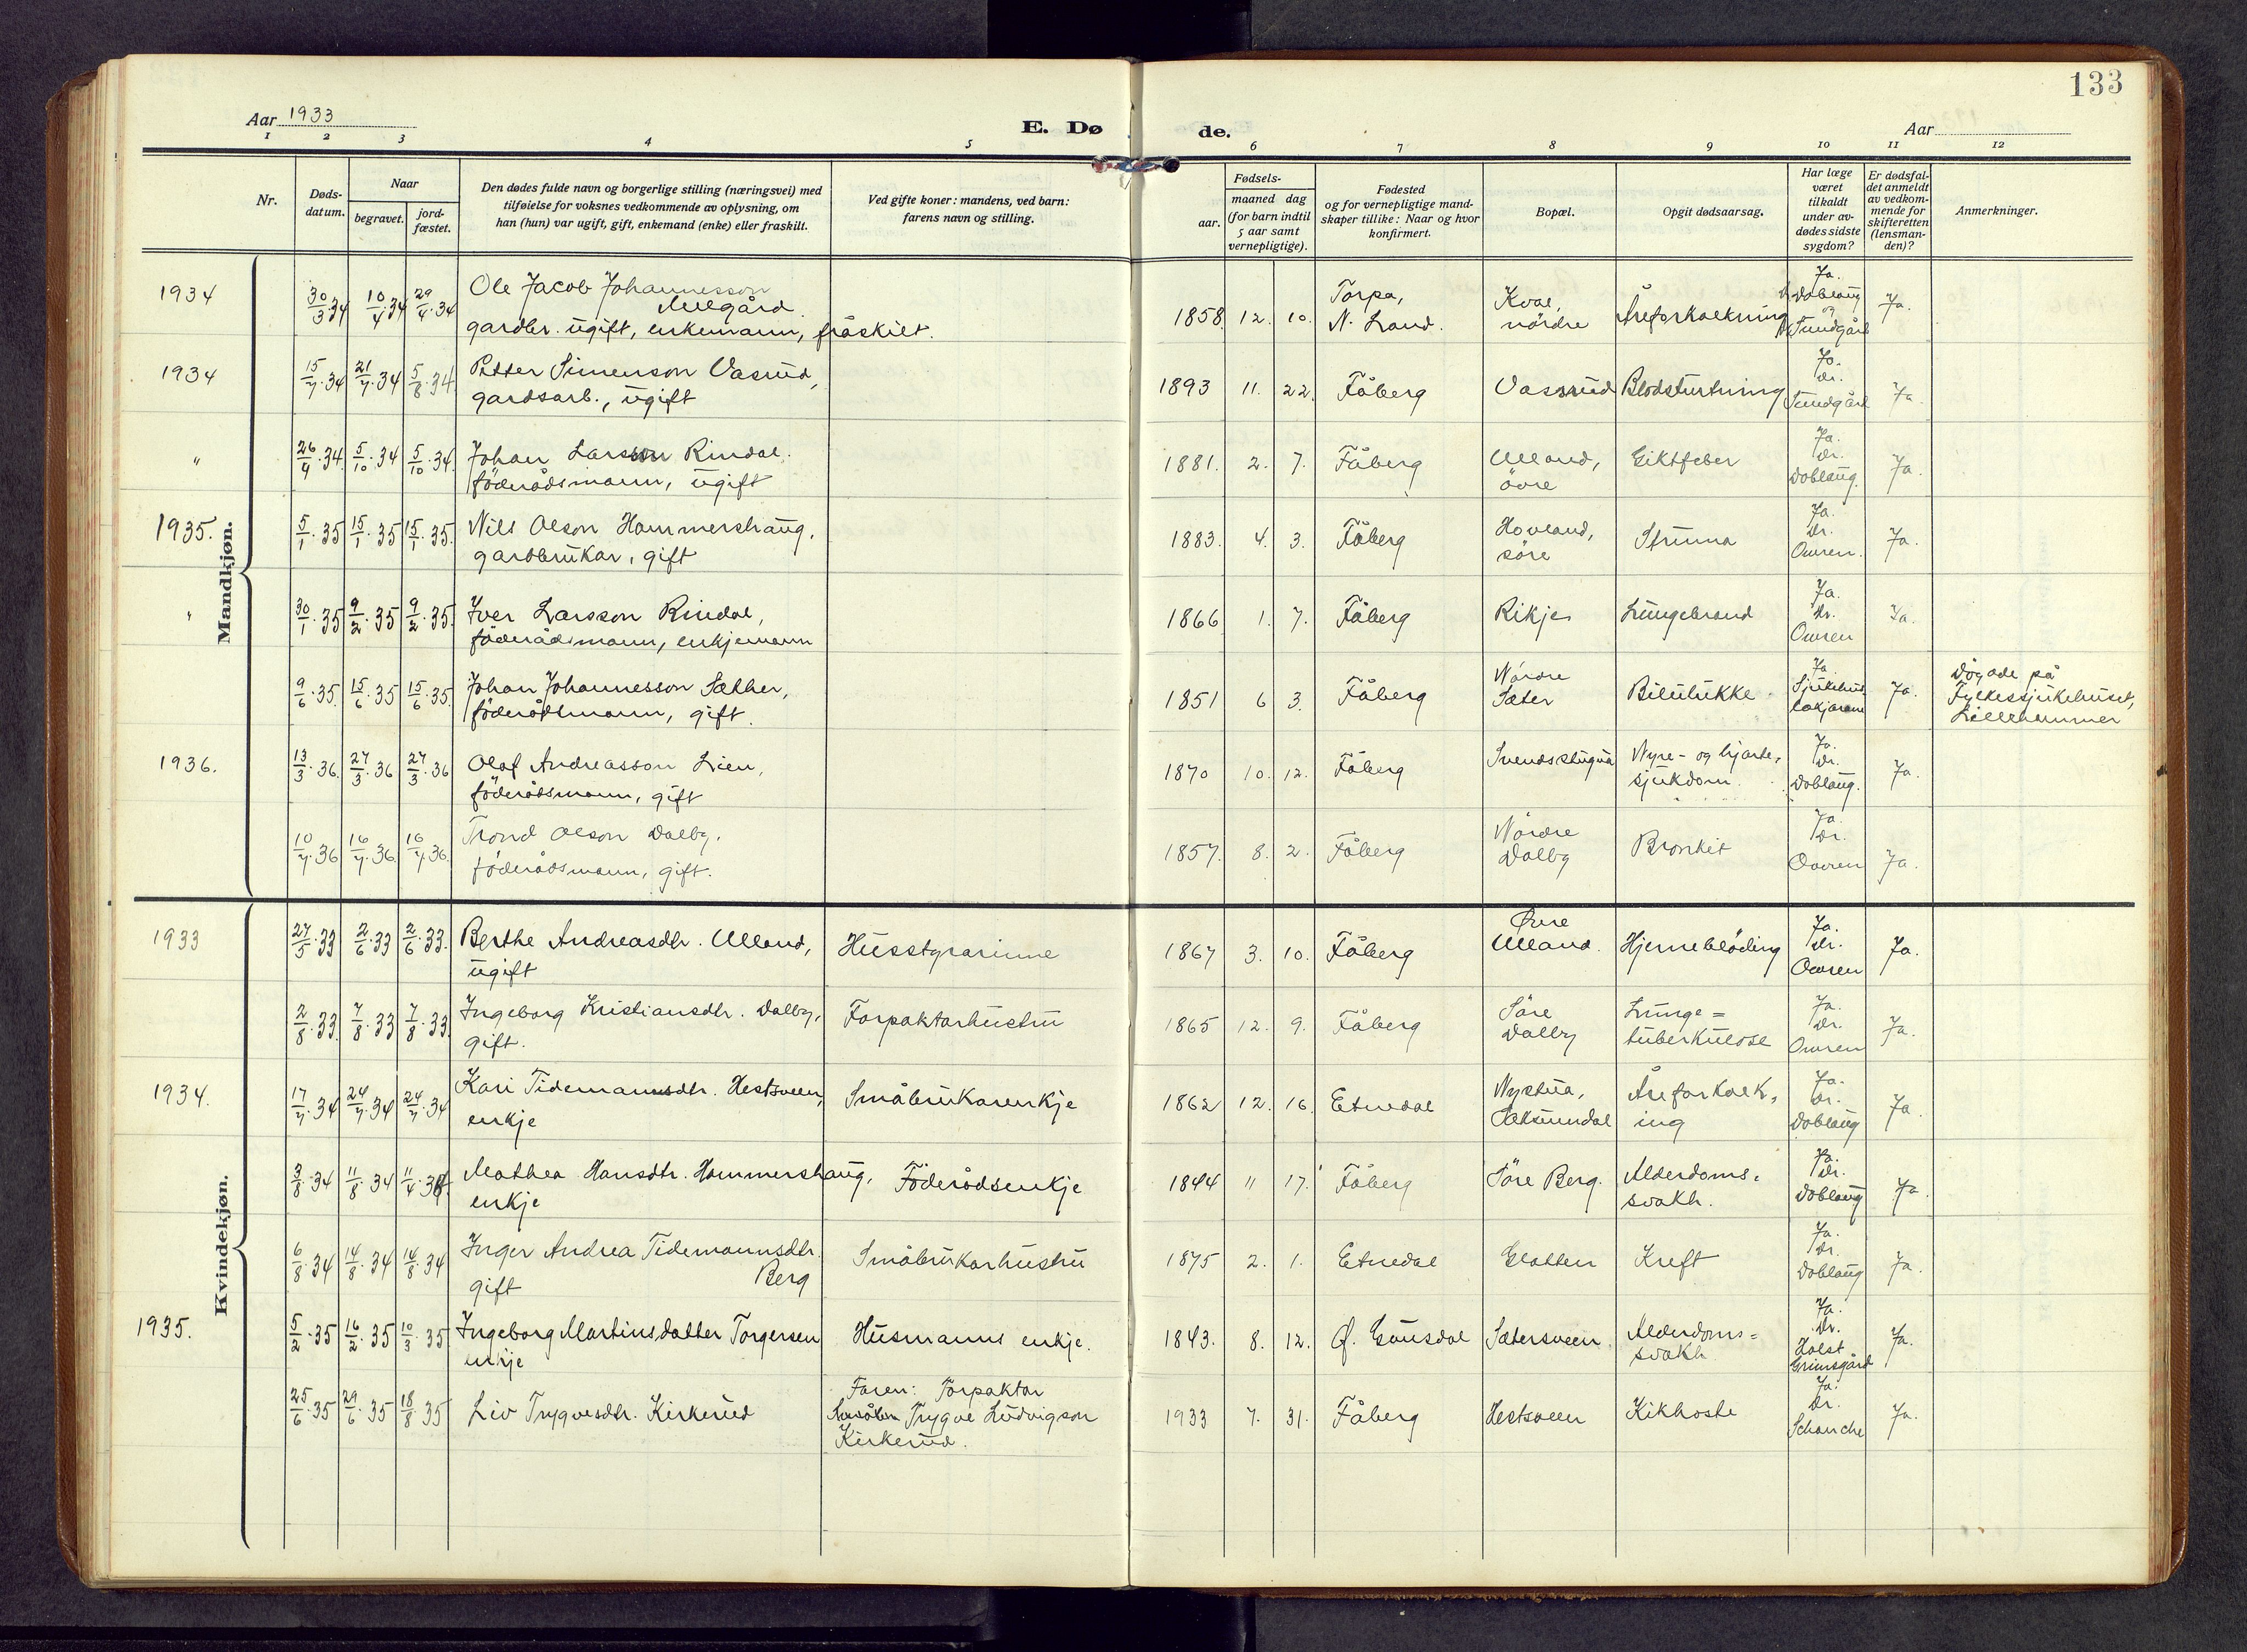 133
Aar 1933
E. Dø
de.
Aar
1 2 3 4 5
6 7 8 9 10 11 12
Nr.
Døds-
datum.
Naar
begravet.
jord-
fæstet.
Den dødes fulde navn og borgerlige stilling (næringsvei) med
tilføielse for voksnes vedkommende av oplysning, om
han (hun) var ugift, gift, enkemand (enke) eller fraskilt.
Ved gifte koner: mandens, ved barn:
farens navn og stilling.
Fødsels-
aar.
maaned dag
(for barn indtil
5 aar samt
vernepligtige).
Fødested
og for vernepligtige mand-
skaper tillike: Naar og hvor
konfirmert.
Bopæl.
Opgit dødsaarsag.
Har læge
været
tilkaldt
under av-
dødes sidste
sygdom?
Er dødsfal-
det anmeldt
av vedkom-
mende for
skifteretten
(lensman-
den)?
Anmerkninger.
Mandkjøn.
1934 30/3 34 10/4 34 29/4 34
Ole Jacob Johannesson
gardbr. ugift, enkemann, fråskilt.
1858. 12. 10.
Torpa,
N. Land.
Kval,
nördre
Åreforkalkning
Ja.
Doblaug
og
Sundgård
Ja.
1934 15/7 34 21/7 34 5/8 34
Petter Simenson Vasrud,
gardsarb., ugift
1893 11. 22. Fåberg Vassrud Blodsturtning
Ja.
Dr.
Sundgård
Ja.
" 26/9 34 5/10 34 5/10 34.
Johan Larsson Rindal.
föderådsmann, ugift
1881. 2. 7. Fåberg
Ulland,
övre
Giktfeber
Ja.
Dr.
Doblaug.
Ja.
1935. 5/1 35 15/1 35 15/1 35.
Nils Olson Hammershaug,
gardbrukar, gift
1883. 4. 3. Fåberg
Hovland,
söre
Struma
Ja.
Dr.
Owren.
Ja.
" 30/1 35 9/2 35 9/2 35.
Iver Larsson Rindal,
föderådsmann, enkjemann
1866 1. 7. Fåberg Rikje Lungebrand
Ja.
Dr.
Owren
Ja.
9/6 35. 15/6 35 15/6 35.
Johan Johannesson Sæther,
föderådsmann, gift.
1851 6 3. Fåberg
Nördre
Sæter
Bilulukke
Ja
Sjukehus
lækjarane
Ja.
Döydde på
Fylkessjukehuset,
Lillehammer
1936. 13/3 36. 27/3 36 27/3 36
Olaf Andreasson Lien,
föderådsmann, gift
1870 10. 12. Fåberg Svendsstugua
Nyre- og hjarte-
sjukdom.
Ja.
Dr.
Doblaug.
Ja.
10/7 36 16/7 36. 16/7 36.
Trond Olson Dalby.
föderådsmann, gift.
1857. 8. 2. Fåberg
Nördre
Dalby
Bronkit
Ja.
Dr.
Owren
Ja.
Kvindekjøn.
1933 27/5 33 2/6 33 2/6 33.
Berthe Andreasdtr. Ulland,
ugift
Husstyrarinne
1867 3. 10. Fåberg
Øvre
Ulland.
Hjerneblöding
Ja.
Dr.
Owren
Ja.
2/8 33. 7/8 33 7/8 33.
Ingeborg Kristiansdtr. Dalby,
gift.
Forpaktarhustru
1865 12. 9. Fåberg
Söre
Dalby
Lunge=
tuberkulose
Ja.
Dr.
Owren
Ja.
1934. 17/7 34 24/7 34 24/7 34
Kari Tidemannsdtr. Hestsveen,
enkje
Småbrukarenkje
1862 12. 16. Etnedal
Nystua,
Saksumdal
Åreforkalk-
ing
Ja.
Dr.
Doblaug
Ja.
3/8 34 11/8 34 11/4 34.
Mathea Hansdtr. Hammershaug,
enkje
Föderådsenkje
1844 11 17. Fåberg Söre Berg.
Alderdoms-
svakh.
Ja.
Dr.
Doblaug
Ja.
6/8 34 14/8 34 14/8 34
Inger Andrea Tidemannsdtr.
gift Berg
Småbrukarhustru
1875 2. 1. Etnedal Slatten Kreft
Ja.
Dr.
Doblaug
Ja.
1935. 5/2 35 16/2 35 10/3 35
Ingeborg Martinsdatter Torgersen
enkje
Husmanns enkje.
1843. 8. 12. Ø. Gausdal Sætersveen.
Alderdoms=
svakh.
Ja.
Dr.
Holst
Grimsgård
Ja.
25/6 35 29/6 35 18/8 35
Liv Trygvesdtr. Kirkerud
Faren: Forpaktar
Trygve Ludvigson
Kirkerud.
1933 7. 31. Fåberg Hestsveen Kikhoste
Ja.
Dr.
Schanche
Ja.